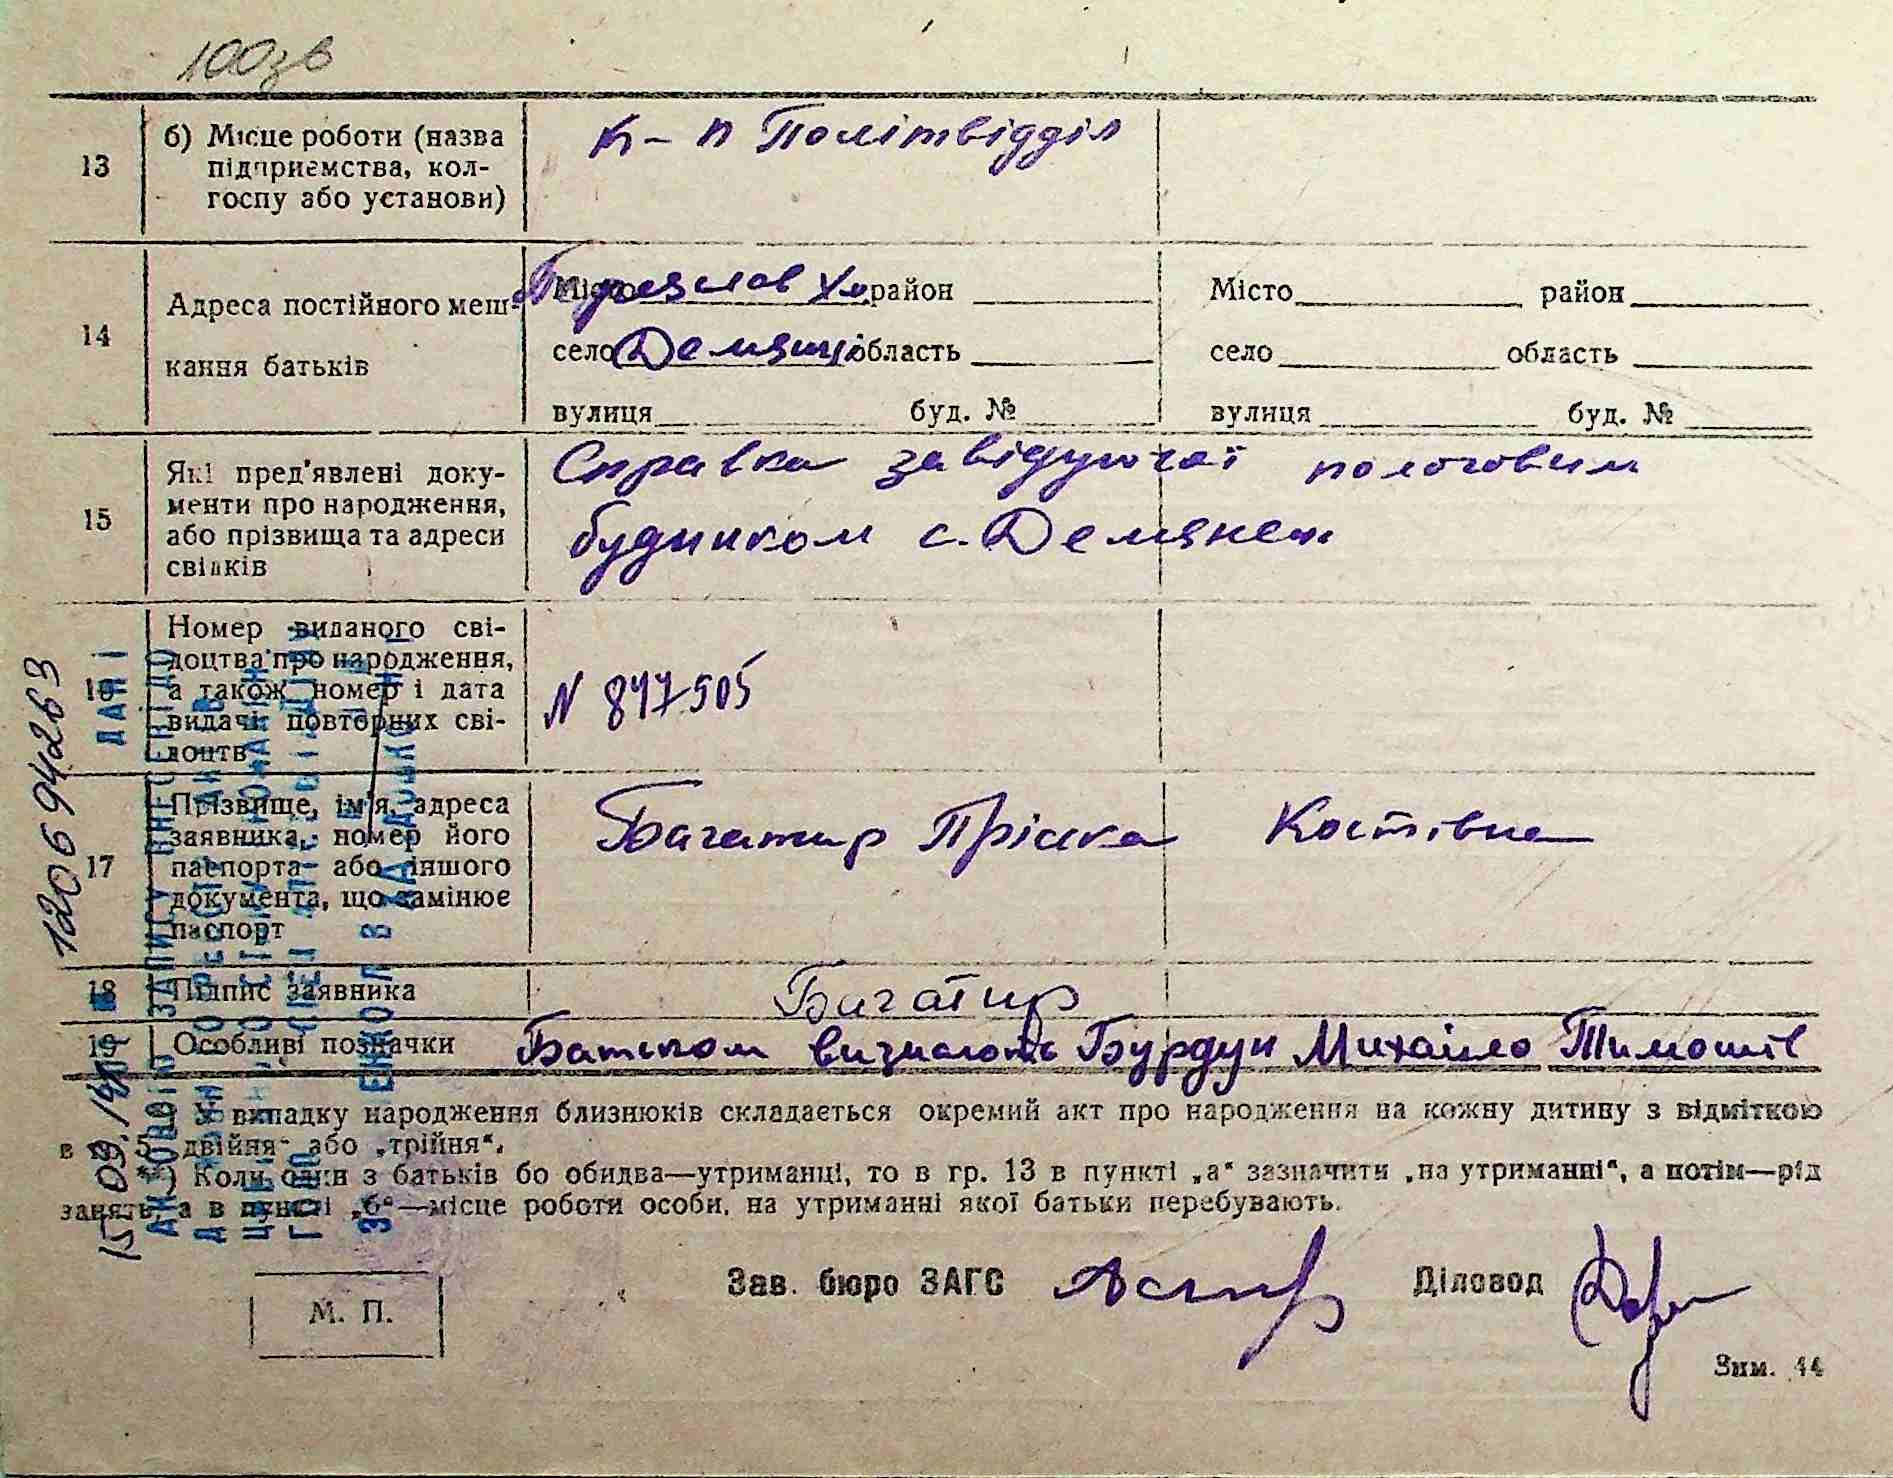 100зв
13
б) Місце роботи (назва
підприємства, кол-
госпу або установи)
к-п Політвідділ
14
Адреса постійного меш-
кання батьків
Місто Переяслав Хм район
село Демянці область
вулиця буд. №
Місто район
село область
вулиця буд. №
15
Які пред'явлені доку-
менти про народження,
або прізвища та адреси
свідків
Справка завідуючої пологовим
будинком с. Демянец
16
Номер виданого сві-
доцтва про народження,
а також номер і дата
видачі повторних сві-
доцтв
N 847505
17
Прізвище, ім'я, адреса
заявника, номер його
паспорта або іншого
документа, що замінює
паспорт
Багатир Пріська Костівна
18
Підпис заявника
Багатир
19
Особливі позначки
Батьком визнають Бурдун Михайло Тимошів
У випадку народження близнюків складається окремий акт про народження на кожну дитину з відміткою
в 5 „двійня" або „трійня".
**) Коли один з батьків бо обидва—утриманці, то в гр. 13 в пункті „а" зазначити „на утриманні", а потім—рід
занять, а в пункті „б"—місце роботи особи, на утриманні якої батьки перебувають.
М. П.
Зав. бюро ЗАГС
Діловод
Зим. 44
1206 94263
ДАНІ
АКТОВОГО ЗАПИСУ ВНЕСЕНІ ДО